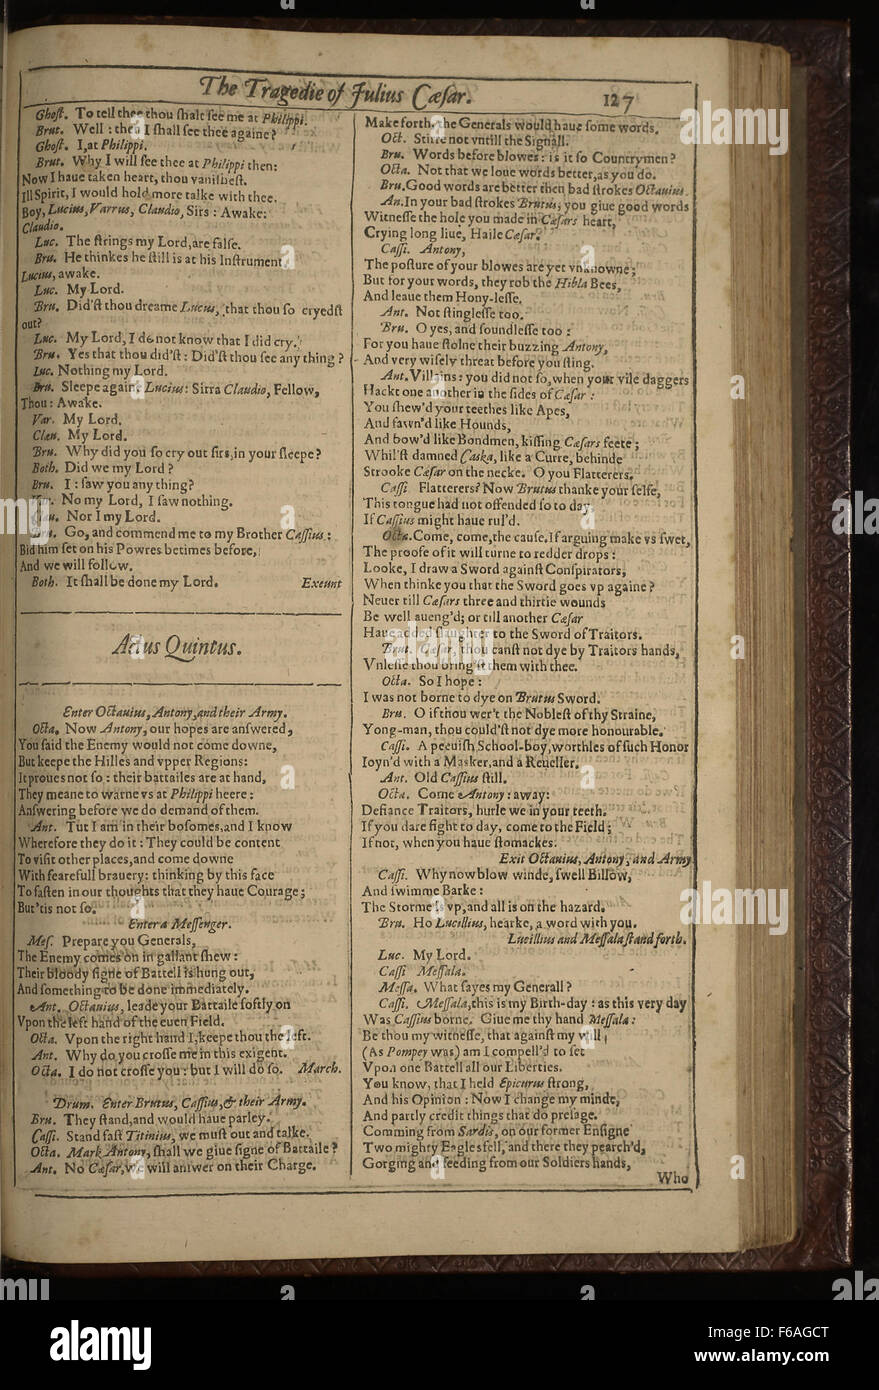 The Tragedie of Julius Cæsar. 127
Ghoſt. To tell thee thou ſhalt ſee me at Philippi.
Brut. Well: then I ſhall ſee thee againe?
Ghoſt. I, at Philippi.
Brut. Why I will ſee thee at Philippi then:
Now I haue taken heart, thou vaniſheſt.
Ill Spirit, I would hold more talke with thee.
Boy, Lucius, Varrus, Claudio, Sirs: Awake:
Claudio.
Luc. The ſtrings my Lord, are falſe.
Bru. He thinkes he ſtill is at his Inſtrument.
Lucius, awake.
Luc. My Lord.
Bru. Did'ſt thou dreame Lucus, that thou ſo cryedſt
out?
Luc. My Lord, I do not know that I did cry.
Bru. Yes that thou did'ſt: Did'ſt thou ſee any thing?
Luc. Nothing my Lord.
Bru. Sleepe againe Lucius: Sirra Claudio, Fellow,
Thou: Awake.
Var. My Lord.
Clau. My Lord.
Bru. Why did you ſo cry out ſirs, in your ſleepe?
Both. Did we my Lord?
Bru. I: ſaw you any thing?
Var. No my Lord, I ſaw nothing.
Clau. Nor I my Lord.
Bru. Go, and commend me to my Brother Caſſius:
Bid him ſet on his Powres betimes before,
And we will follow.
Both. It ſhall be done my Lord. Exeunt
Actus Quintus.
Enter Octauius, Antony, and their Army.
Octa. Now Antony, our hopes are anſwered,
You ſaid the Enemy would not come downe,
But keepe the Hilles and vpper Regions:
It proues not ſo: their battailes are at hand,
They meane to warne vs at Philippi heere:
Anſwering before we do demand of them.
Ant. Tut I am in their boſomes, and I know
Wherefore they do it: They could be content
To viſit other places, and come downe
With fearefull brauery: thinking by this face
To faſten in our thoughts that they haue Courage;
But 'tis not ſo.
Enter a Meſſenger.
Meſ. Prepare you Generals,
The Enemy comes on in gallant ſhew:
Their bloody ſigne of Battell is hung out,
And ſomething to be done immediately.
Ant. Octauius, leade your Battaile ſoftly on
Vpon the left hand of the euen Field.
Octa. Vpon the right hand I, keepe thou the left.
Ant. Why do you croſſe me in this exigent.
Octa. I do not croſſe you: but I will do ſo. March.
Drum. Enter Brutus, Caſſius, & their Army.
Bru. They ſtand, and would haue parley.
Caſſi. Stand faſt Titinius, we muſt out and talke.
Octa. Mark Antony, ſhall we giue ſigne of Battaile?
Ant. No Cæſar, we will anſwer on their Charge.
Make forth, the Generals would haue ſome words.
Oct. Stirre not vntill the Signall.
Bru. Words before blowes: is it ſo Countrymen?
Octa. Not that we loue words better, as you do.
Bru. Good words are better then bad ſtrokes Octauius.
An. In your bad ſtrokes Brutus, you giue good words
Witneſſe the hole you made in Cæſars heart,
Crying long liue, Haile Cæſar.
Caſſi. Antony,
The poſture of your blowes are yet vnknowne;
But for your words, they rob the Hibla Bees,
And leaue them Hony-leſſe.
Ant. Not ſtingleſſe too.
Bru. O yes, and ſoundleſſe too:
For you haue ſtolne their buzzing Antony,
And very wiſely threat before you ſting.
Ant. Villains: you did not ſo, when your vile daggers
Hackt one another in the ſides of Cæſar:
You ſhew'd your teethes like Apes,
And fawn'd like Hounds,
And bow'd like Bondmen, kiſſing Cæſars feete;
Whil'ſt damned Caska, like a Curre, behinde
Strooke Cæſar on the necke. O you Flatterers.
Caſſi. Flatterers? Now Brutus thanke your ſelfe,
This tongue had not offended ſo to day,
If Caſſius might haue rul'd.
Octa. Come, come, the cauſe. If arguing make vs ſwet,
The proofe of it will turne to redder drops:
Looke, I draw a Sword againſt Conſpirators,
When thinke you that the Sword goes vp againe?
Neuer till Cæſars three and thirtie wounds
Be well aueng'd; or till another Cæſar
Haue added ſlaughter to the Sword of Traitors.
Brut. Cæſar, thou canſt not dye by Traitors hands,
Vnleſſe thou bring'ſt them with thee.
Octa. So I hope:
I was not borne to dye on Brutus Sword.
Bru. O if thou wer't the Nobleſt of thy Straine,
Yong-man, thou could'ſt not dye more honourable.
Caſſi. A peeuiſh School-boy, worthles of ſuch Honor
Ioyn'd with a Masker, and a Reueller.
Ant. Old Caſſius ſtill.
Octa. Come Antony: away:
Defiance Traitors, hurle we in your teeth.
If you dare fight to day, come to the Field;
If not, when you haue ſtomackes.
Exit Octauius, Antony, and Army
Caſſi. Why now blow winde, ſwell Billow,
And ſwimme Barke:
The Storme is vp, and all is on the hazard.
Bru. Ho Lucillius, hearke, a word with you.
Lucillius and Meſſala ſtand forth.
Luc. My Lord.
Caſſi Meſſala.
Meſſa. What ſayes my Generall?
Caſſi. Meſſala, this is my Birth-day: as this very day
Was Caſſius borne. Giue me thy hand Meſſala:
Be thou my witneſſe, that againſt my will
(As Pompey was) am I compell'd to ſet
Vpon one Battell all our Liberties.
You know, that I held Epicurus ſtrong,
And his Opinion: Now I change my minde,
And partly credit things that do preſage.
Comming from Sardis, on our former Enſigne
Two mighty Eagles fell, and there they pearch'd,
Gorging and feeding from our Soldiers hands,
Who
alamy
Image ID: F6AGCT
www.alamy.com